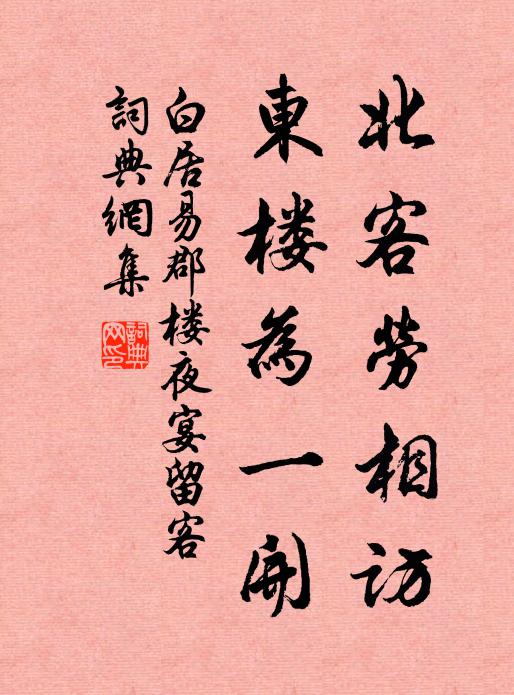 北客劳相訪
東楼為一開
白居易郡楼夜宴留客
詞典網集
詞典
网印